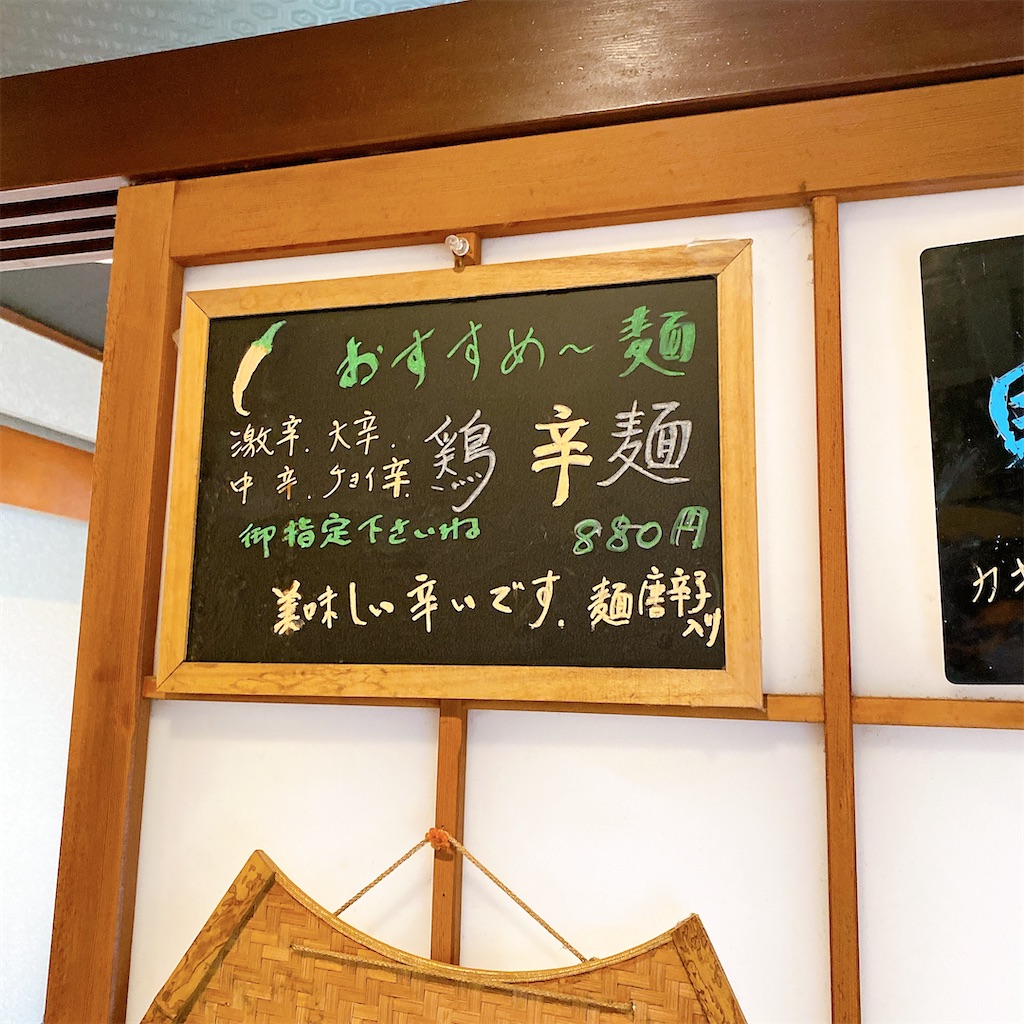 おすすめ〜麺
激辛.大辛.
中辛.チョイ辛.
鶏辛麺
御指定下さいね
880円
美味しい辛いです.麺唐辛子
入り
カキ